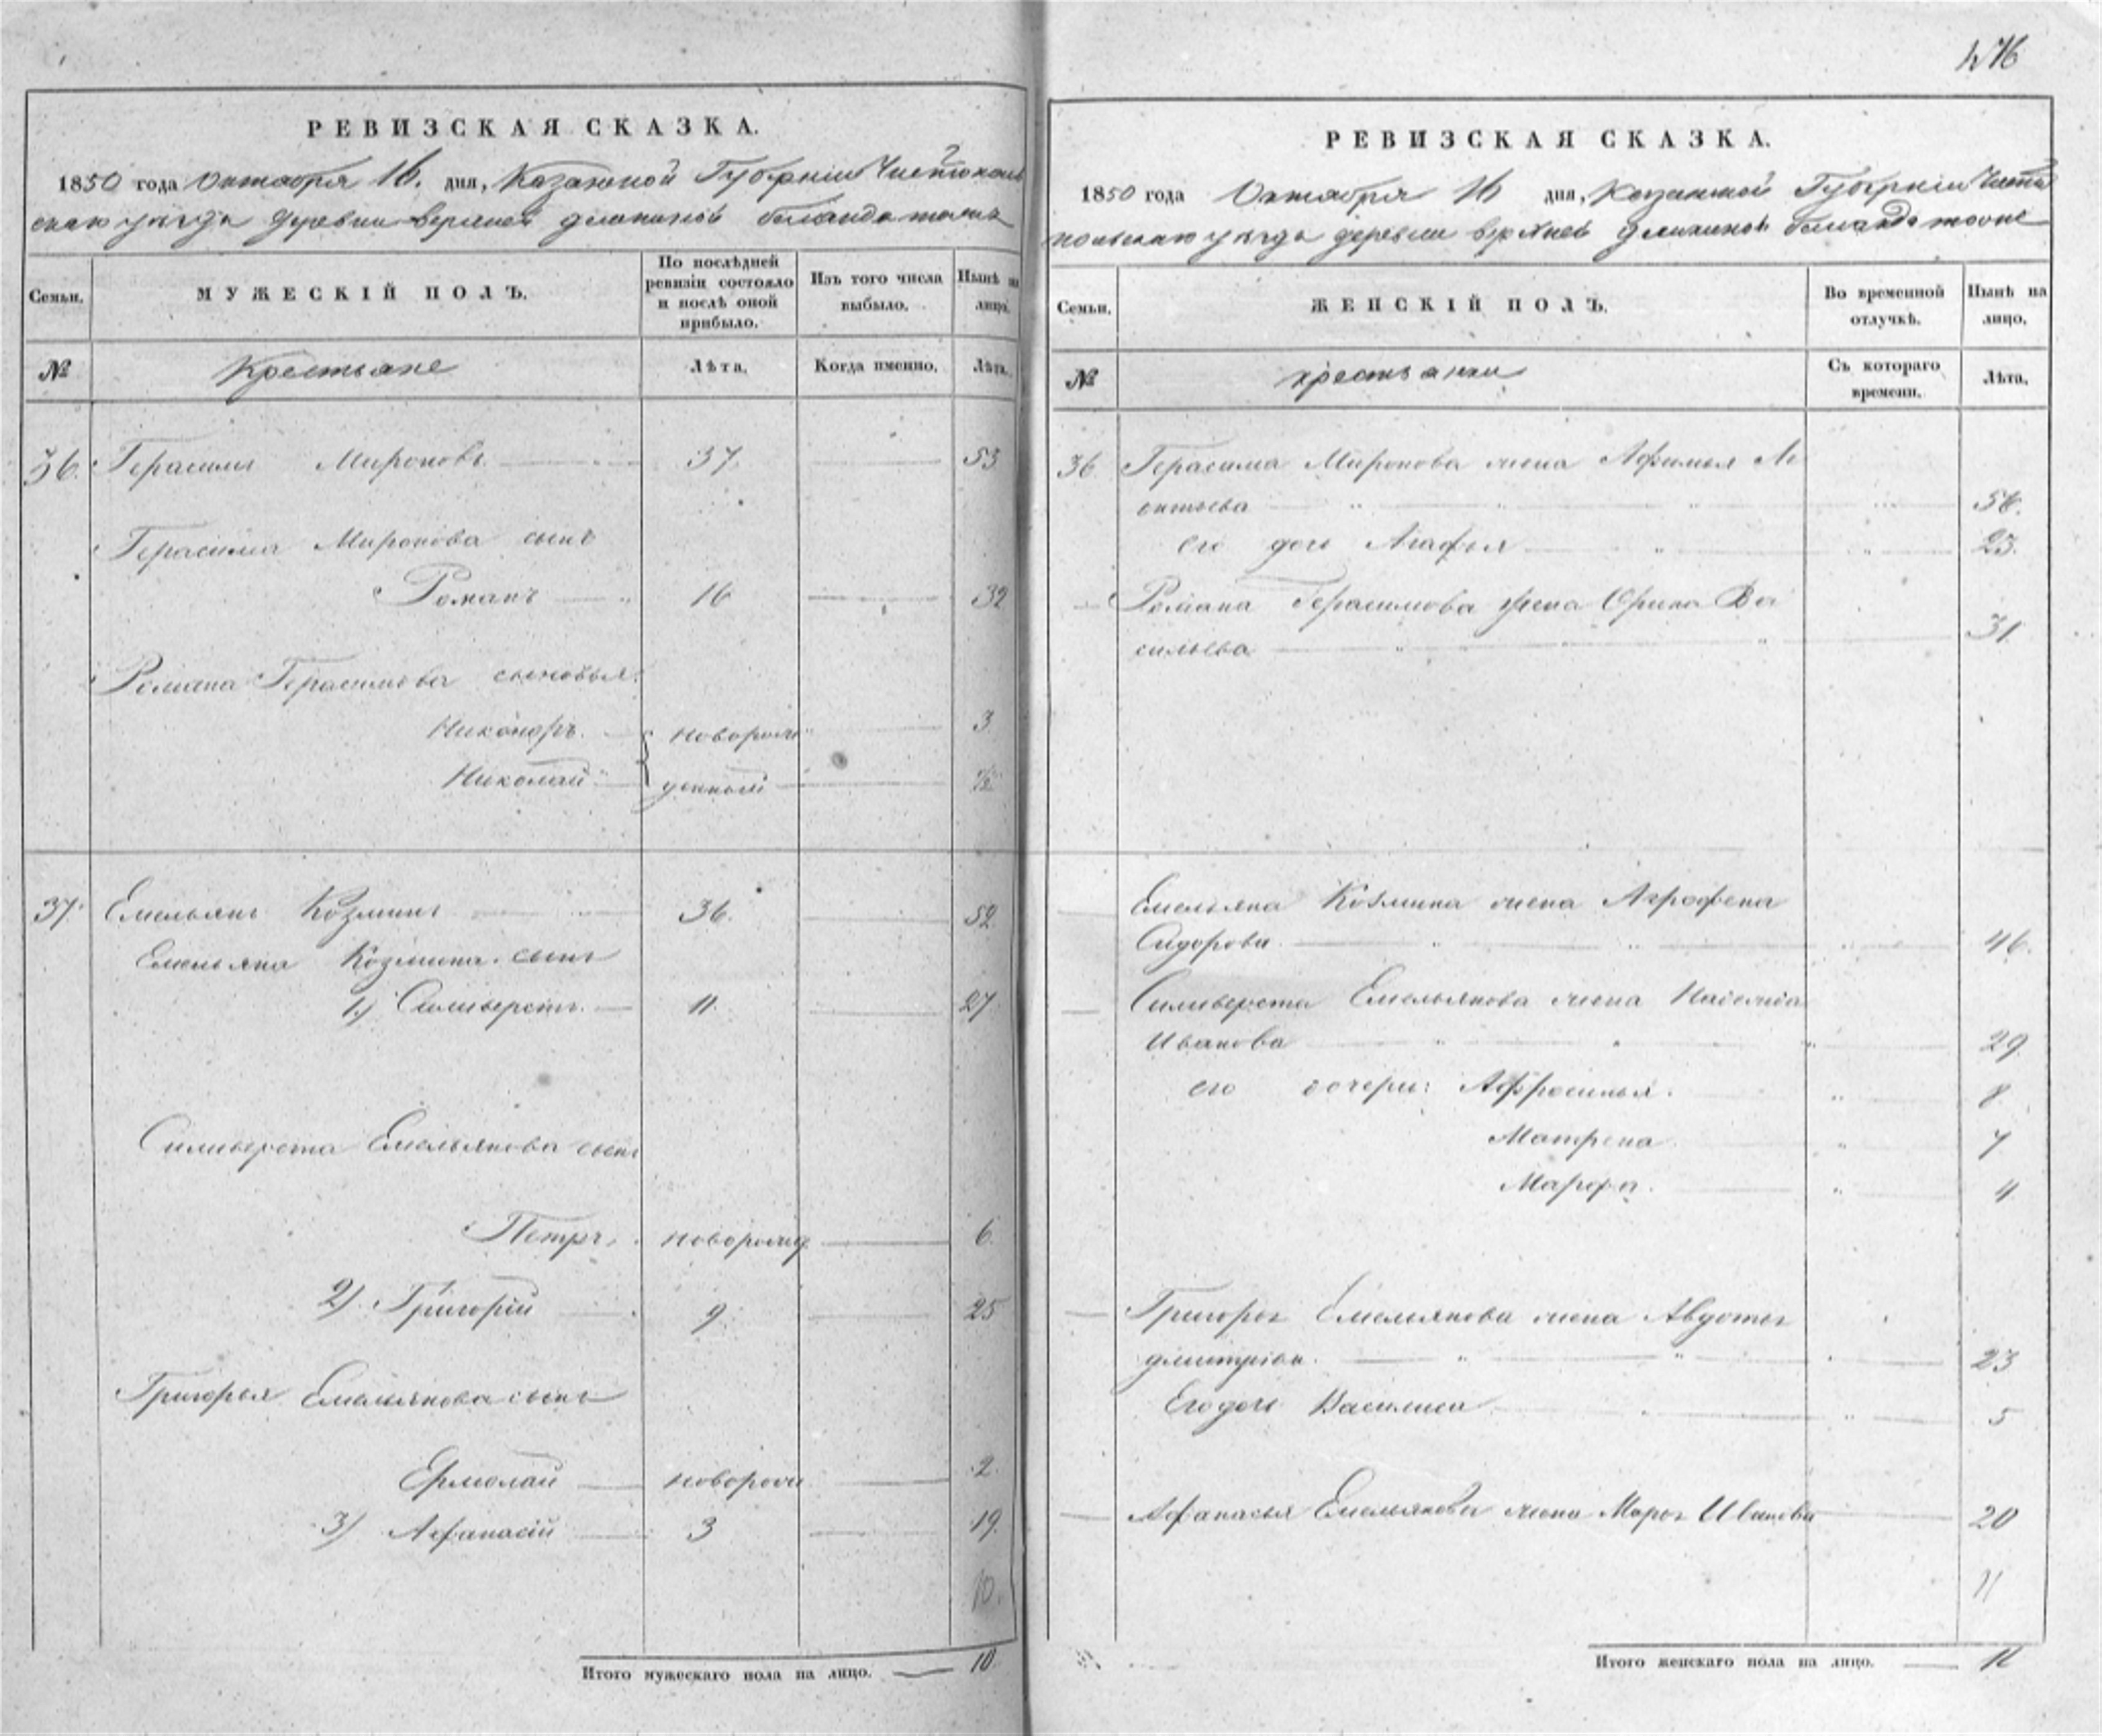 476
РЕВИЗСКАЯ СКАЗКА.
1850 года Октября 16. дня, Казанской Губернiи Чистополь
скаго уѣзда деревни верхней
Семьи.
МУЖЕСКIЙ ПОЛЪ.
По послѣдней ревизiи состояло и послѣ оной прибыло.
Изъ того числа выбыло.
Нынѣ на лицо.
№
Крестьяне
Лѣта.
Когда именно.
Лѣта.
36. Герасимъ Мироновъ 37. 53
Герасима Миронова сынъ
Романъ 16 32
Романа Герасимова сыновья:
Никандръ новорож 3
Николай денной 1/2
37. Емельянъ Козминъ 36. 52
Емельяна Козмина сынъ
1.) Силиверстъ 11. 27
Силиверста Емельянова сынъ
Петръ новорожд 6.
2) Григорiй 9 25
Григорья Емельянова сынъ
Ермолай новорож 2.
3) Афанасiй 3 19.
10.
Итого мужескаго пола на лицо. 10.
РЕВИЗСКАЯ СКАЗКА.
1850 года Октября 16 дня, Казанской Губернiи Чисто
польскаго уѣзда деревни верхней
Семьи.
ЖЕНСКIЙ ПОЛЪ.
Во временной отлучкѣ.
Нынѣ на лицо.
№
крестьянки
Съ котораго времени.
Лѣта.
36. Герасима Миронова жена Афимья Ле
онтьева 56.
его дочь Агафья 23.
Романа Герасимова жена Орина Ва
сильева 31
Емельяна Козмина жена Агрофена
Сидорова 46.
Силиверста Емельянова жена
Иванова 29
его дочери: Афросинья. 8
Матрена 7
Марфа. 4
Григорья Емельянова жена Авдотья
дмитрiва. 23
Его дочь Василиса 5
Афанасья Емельянова жена Марья Иванова 20
11
Итого женскаго пола на лицо. 11